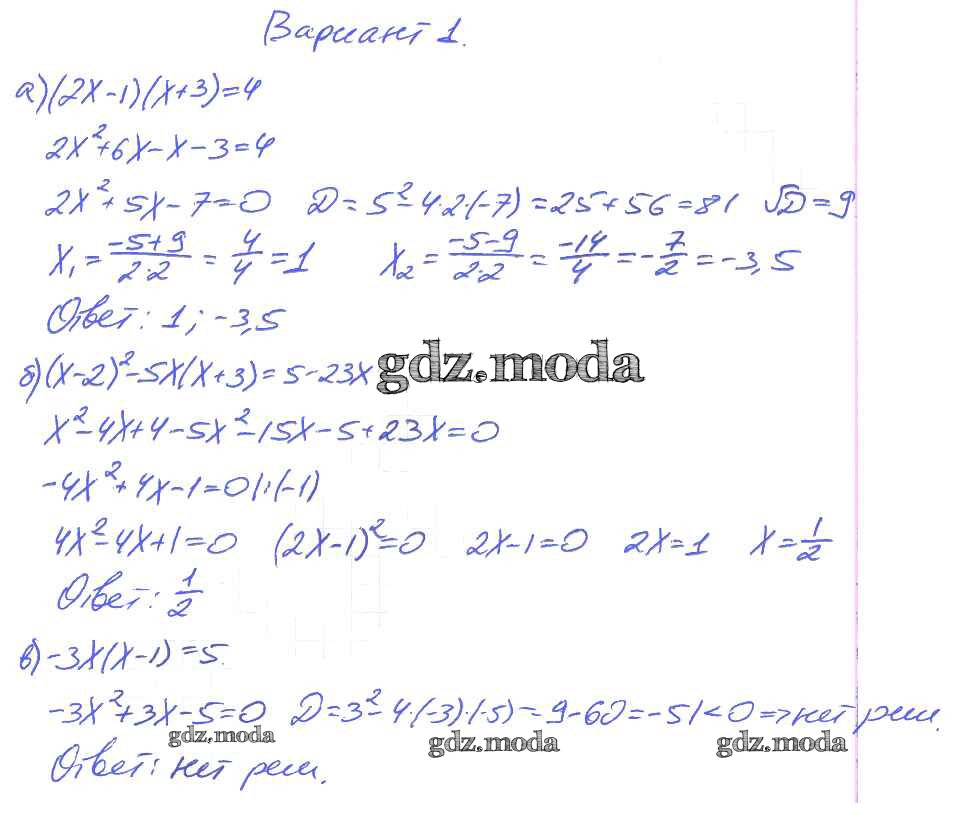 Вариант 1.
а) (2x-1)(x+3)=4
2x²+6x-x-3=4
2x²+5x-7=0 D=5²-4·2·(-7)=25+56=81 √D=9
x₁=\frac{-5+9}{2·2}=\frac{4}{4}=1 x₂=\frac{-5-9}{2·2}=\frac{-14}{4}=-\frac{7}{2}=-3,5
Ответ: 1; -3,5
б) (x-2)²-5x(x+3)=5-23x gdz.moda
x²-4x+4-5x²-15x-5+23x=0
-4x²+4x-1=0|:(-1)
4x²-4x+1=0 (2x-1)²=0 2x-1=0 2x=1 x=\frac{1}{2}
Ответ: \frac{1}{2}
в) -3x(x-1)=5.
-3x²+3x-5=0 D=3²-4·(-3)·(-5)=9-60=-51<0=>нет реш.
gdz.moda gdz.moda gdz.moda
Ответ: нет реш.